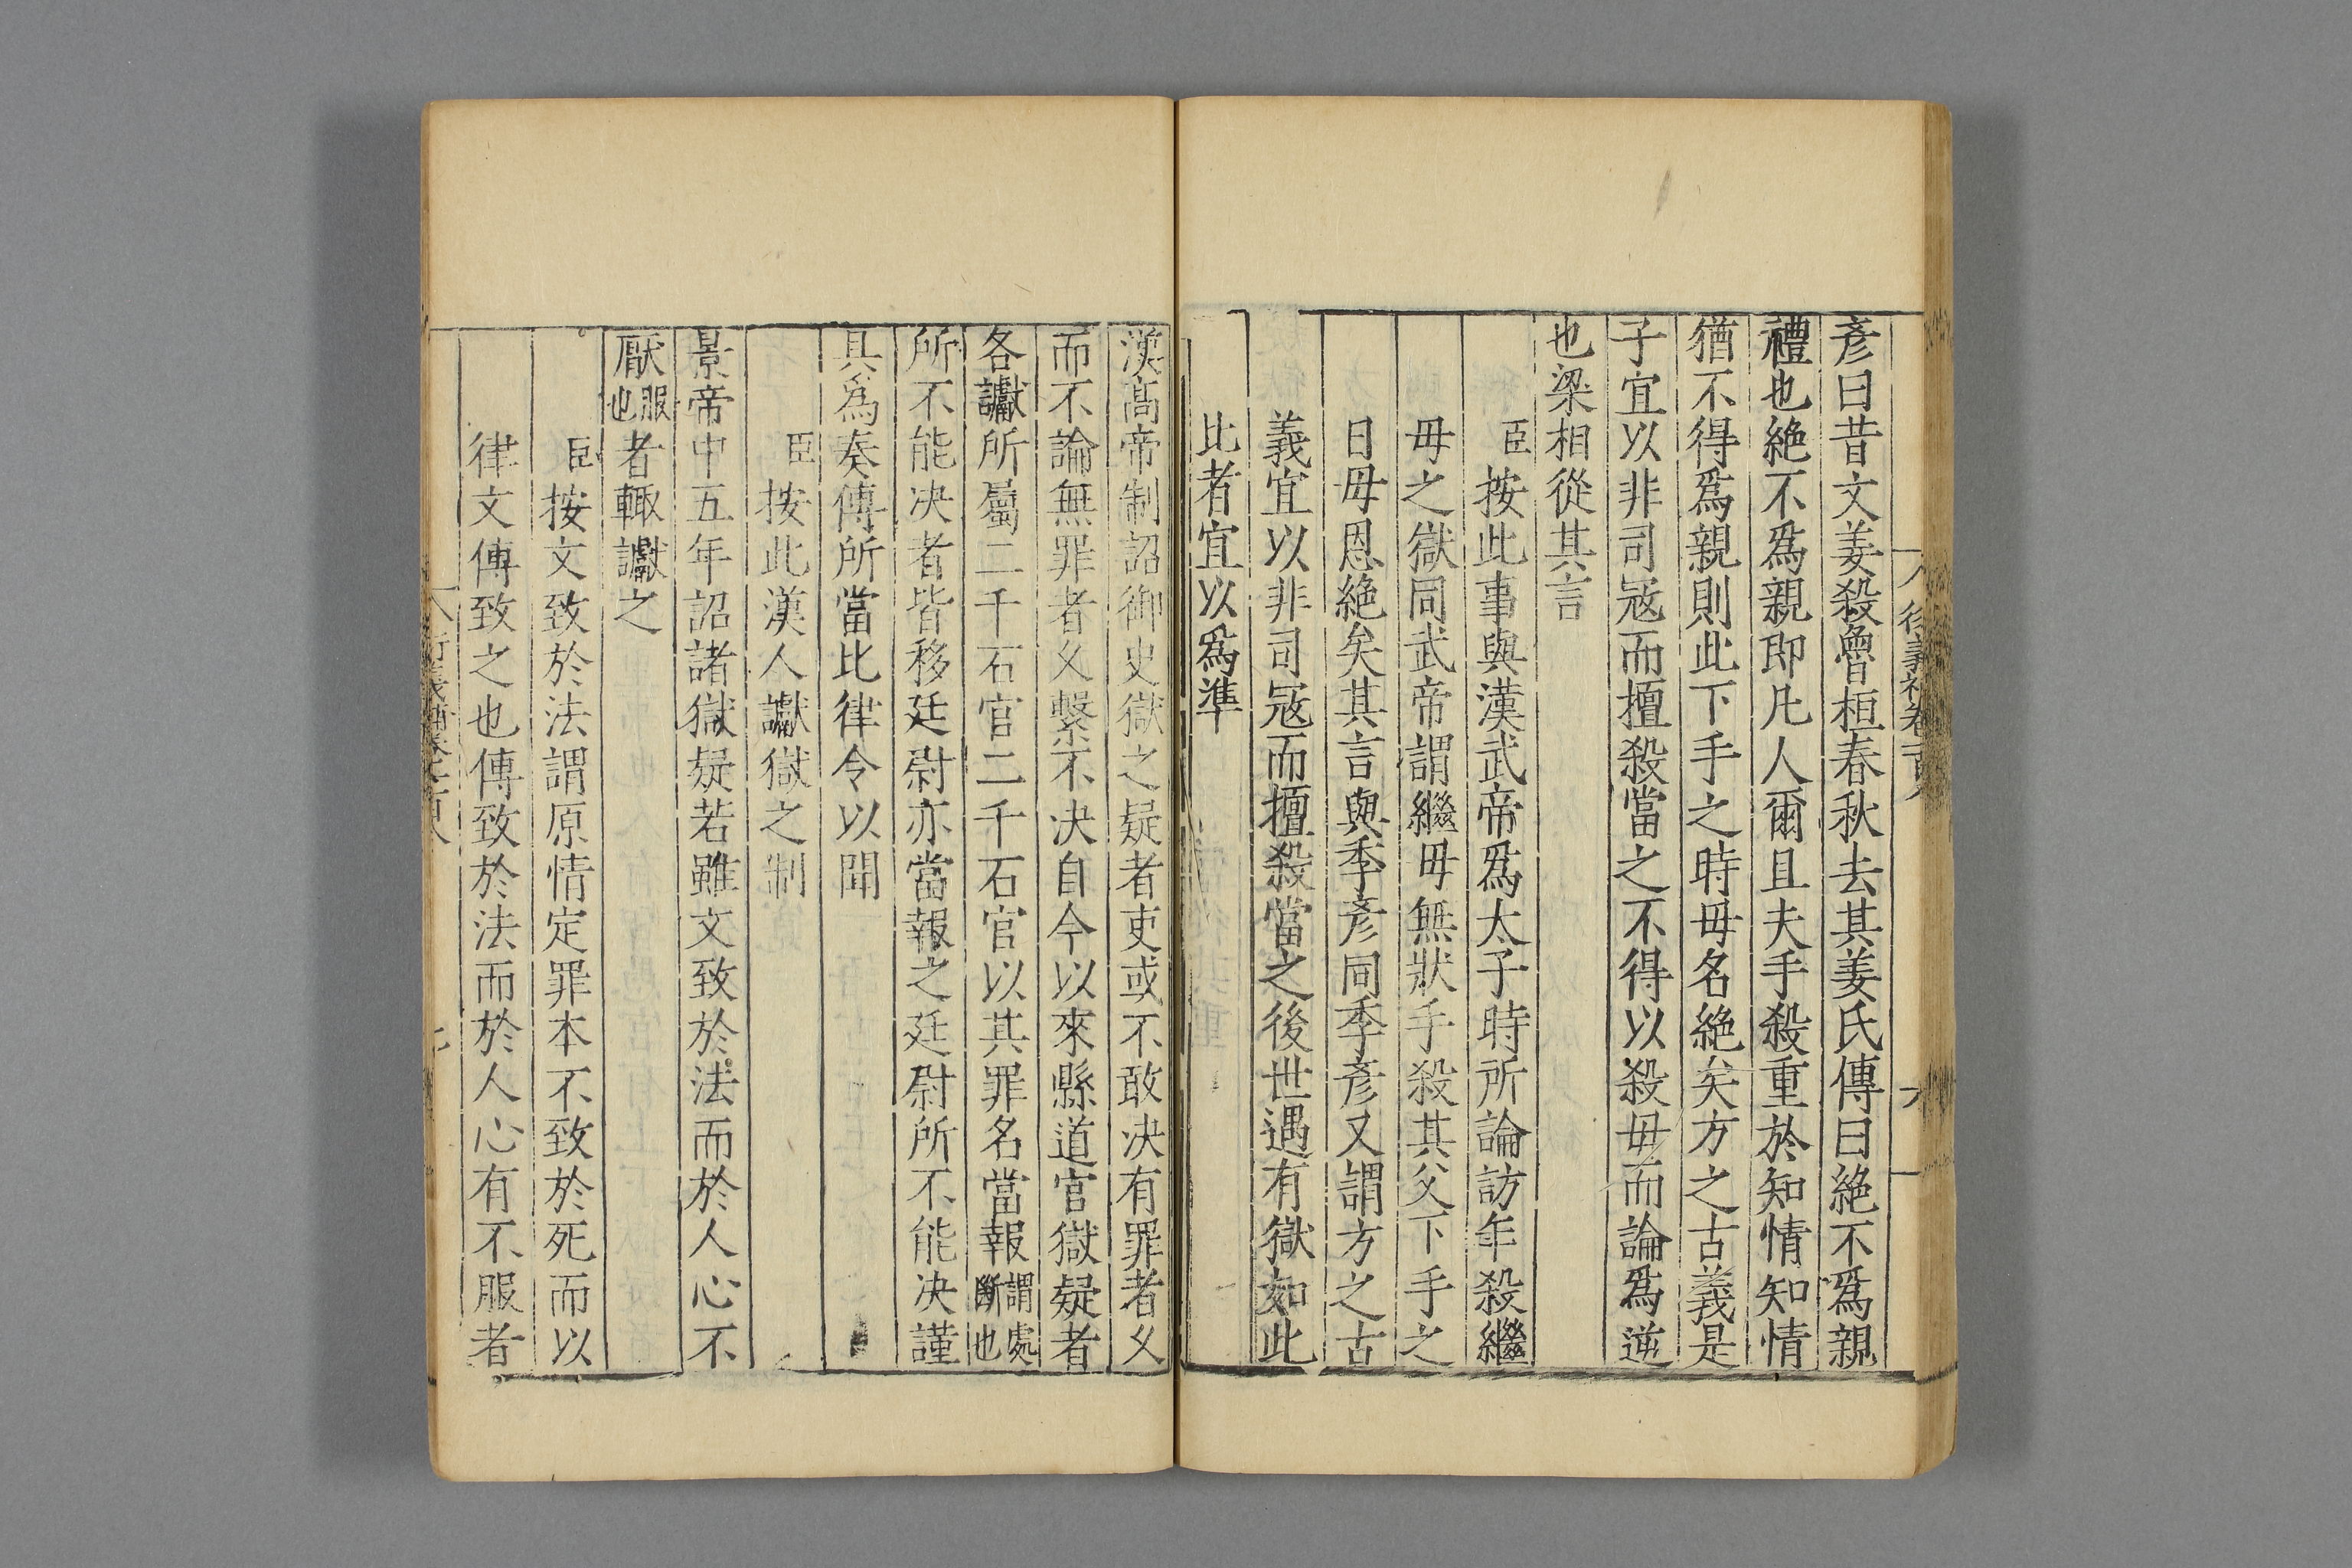 彥曰昔文姜殺魯桓春秋去其姜氏傳曰絶不爲親
禮也絶不爲親即凡人爾且夫手殺重於知情知情
猶不得爲親則此下手之時毋名絶矣方之古義是
子宜以非司冦而擅殺當之不得以殺毋而論爲逆
也梁相從其言
臣按此事與漢武帝爲太子時所論訪年殺繼
毋之獄同武帝謂繼毋無狀手殺其父下手之
日毋恩絶矣其言與季彥同季彥又謂方之古
義宜以非司冦而擅殺當之後世遇有獄如此
比者宜以爲準
漢髙帝制詔御史獄之疑者吏或不敢决有罪者乆
而不論無罪者乆繫不决自今以來縣道官獄疑者
各讞所屬二千石官二千石官以其罪名當報謂處斷也
所不能决者皆移廷尉亦當報之廷尉所不能决謹
具爲奏傳所當比律令以聞
臣按此漢人讞獄之制
景帝中五年詔諸獄疑若雖文致於法而於人心不
厭服也者輙讞之
臣按文致於法謂原情定罪本不致於死而以
律文傅致之也傅致於法而於人心有不服者